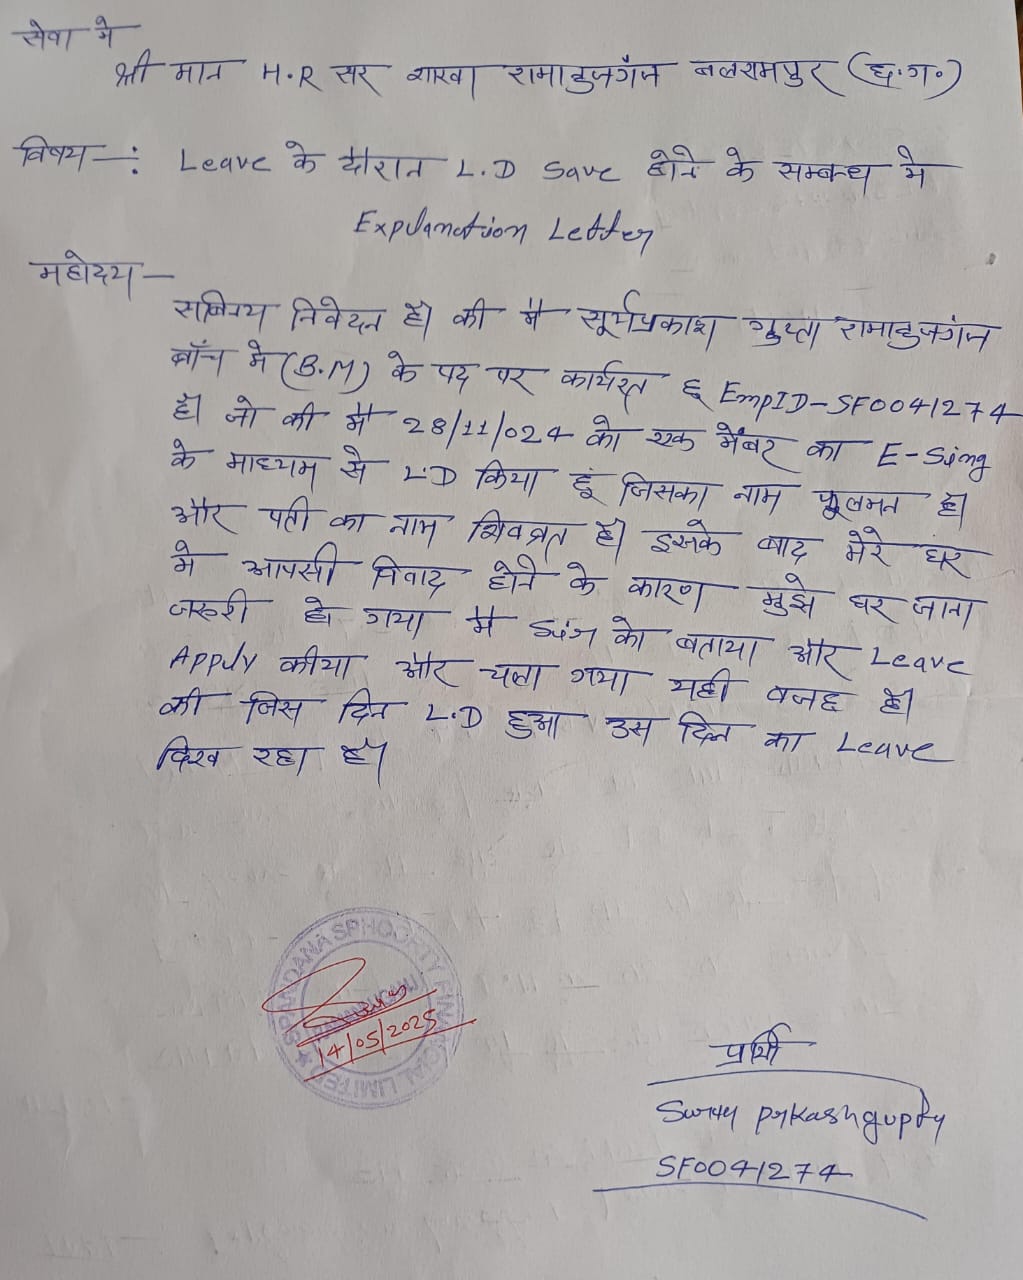 सेवा मे
श्री मान H.R सर शाखा रामानुजगंज बलरामपुर (छ.ग.)
विषय -: Leave के दौरान L.D Save होने के सम्बन्ध मे
Explanation Letter
महोदय -
सविनय निवेदन है। की मै सूर्यप्रकाश गुप्ता रामानुजगंज
ब्राँच मे (B.M) के पद पर कार्यरत हू EmpID-SF0041274
है। जो की मै 28/11/024 को एक मेंबर का E-Sing
के माध्यम से L.D किया हूं जिसका नाम फूलमत है।
और पती का नाम शिवव्रत है। इसके बाद मेरे घर
मे आपसी विवाद होने के कारण मुझे घर जाना
जरूरी हो गया मै को बताया और Leave
Apply कीया और चला गया यही वजह है।
की जिस दिन L.D हुआ उस दिन का Leave
दिख रहा है।
SPANDANA SPHOORTY FINANCIAL LIMITED
14/05/2025
प्रार्थी
Surya prkash gupta
SF0041274